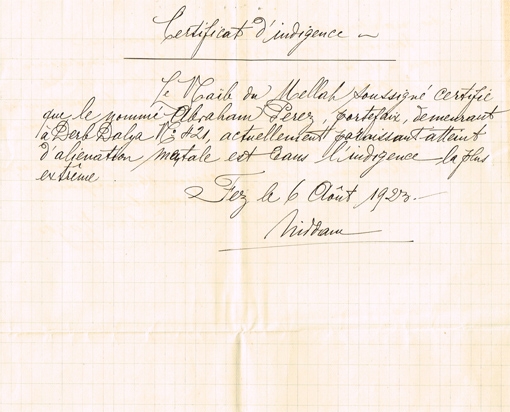 Certificat d'indigence
Le Naib du Mellah soussigné certifie
que le nommé Abraham Perez, portefaix, demeurant
à Derb Dalya N° 421, actuellement paraissant atteint
d'aliénation mentale est dans l'indigence la plus
extrême
Fez le 6 Août 1923
Niddam